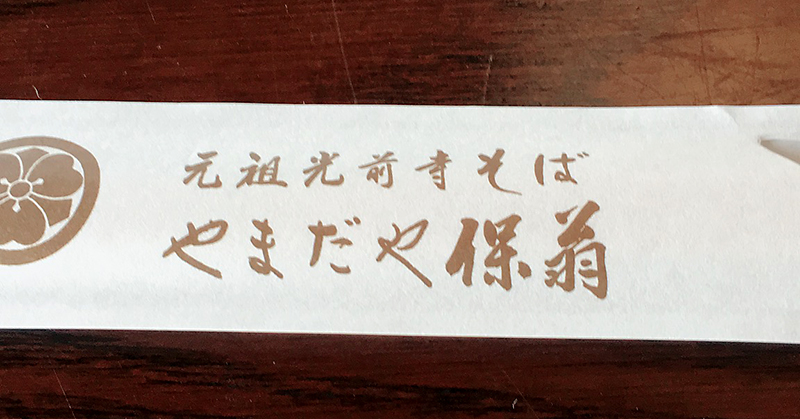 元祖光前寺そば
やまだや保翁